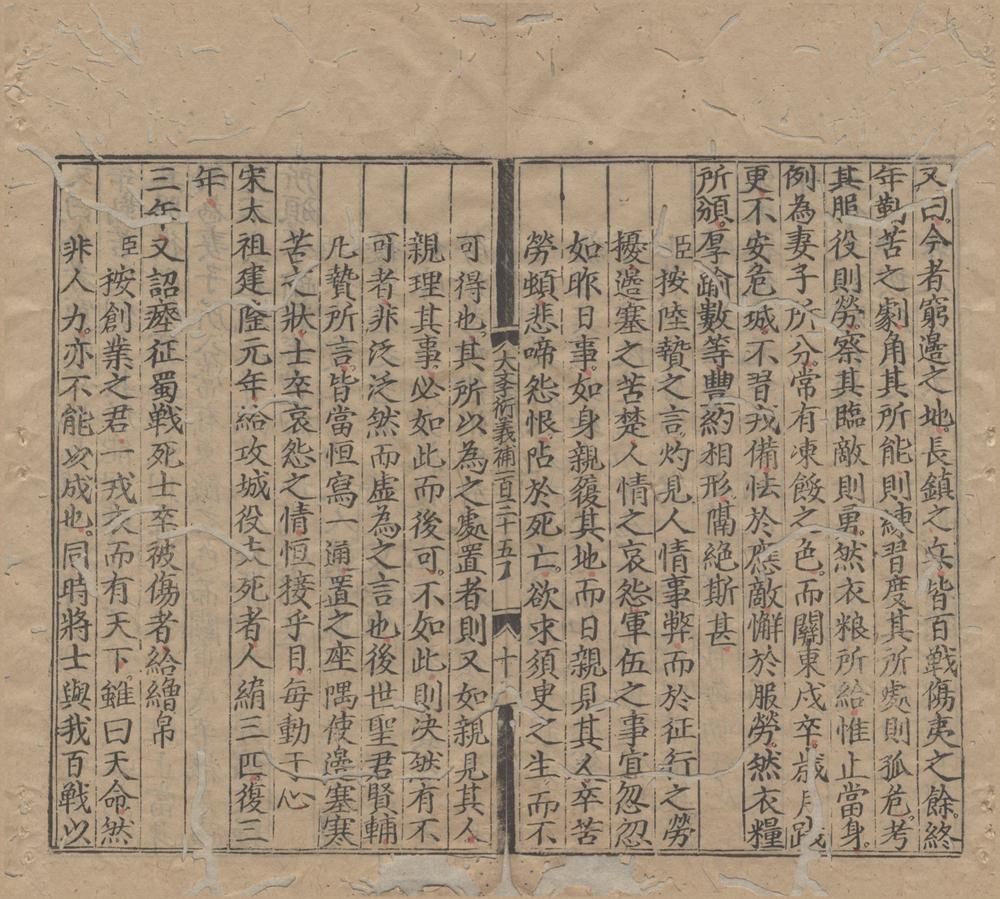 又曰今者窮邊之地長鎮之兵皆百戰傷夷之餘終
年勤苦之劇角其所能則練習度其所處則孤危考
其服役則勞察其臨敵則勇然衣粮所給惟止當身
例為妻子所分常有凍餒之色而關東戍卒歲月踐
更不安危城不習戎備怯於應敵懈於服勞然衣糧
所頒厚踰數等豐約相形隔絕斯甚
臣按陸贄之言灼見人情事弊而於征行之勞
擾邊塞之苦楚人情之哀怨軍伍之事宜忽忽
如昨日事如身親履其地而日親見其人卒苦
勞頓悲啼怨恨阽於死亡欲求須臾之生而不
大學衍義補一百三十五 十六
可得也其所以為之處置者則又如親見其人
親理其事必如此而後可不如此則决然有不
可者非泛泛然而虛為之言也後世聖君賢輔
凡贄所言皆當恒寫一通置之座隅使邊塞寒
苦之狀士卒哀怨之情恒接乎目每動于心
宋太祖建隆元年給攻城役夫死者人絹三匹復三
年
三年又詔瘞征蜀戰死士卒被傷者給繒帛
臣按創業之君一戎衣而有天下雖曰天命然
非人力亦不能以成也同時將士與我百戰以